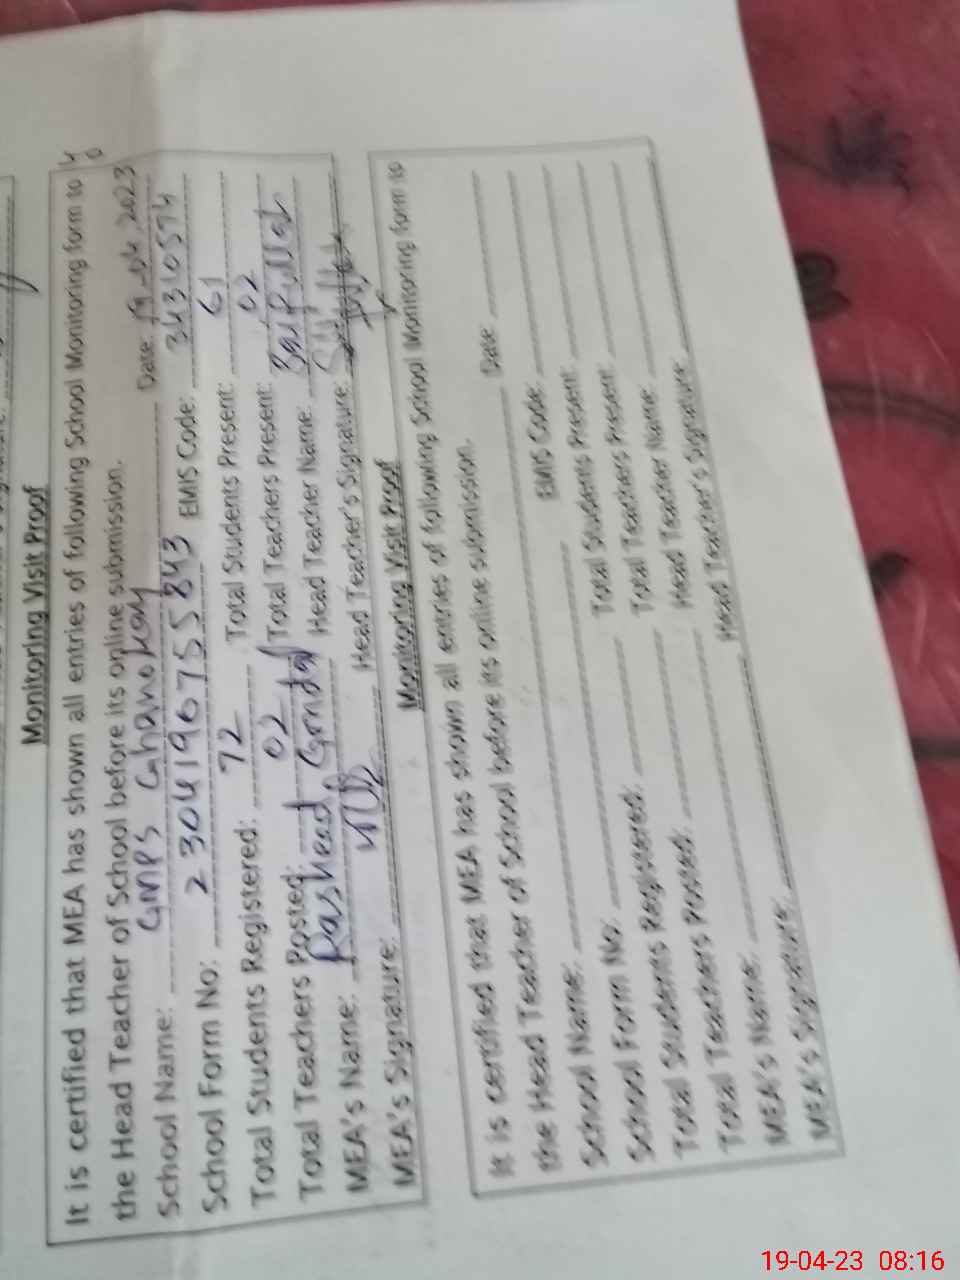 Monitoring Visit Proof
It is certified that MEA has shown all entries of following School Monitoring form to
the Head Teacher of School before its online submission.
School Name: GMPS Chanokay Date: 19-04-2023
School Form No: 2304196755843 EMIS Code: 34310574
Total Students Registered: 72 Total Students Present: 61
Total Teachers Posted: 02 Total Teachers Present: 02
MEA's Name: Rasheed Head Teacher Name:
MEA's Signature: Head Teacher's Signature:
Monitoring Visit Proof
It is certified that MEA has shown all entries of following School Monitoring form to
the Head Teacher of School before its online submission.
School Name: Date:
School Form No: EMIS Code:
Total Students Registered: Total Students Present:
Total Teachers Posted: Total Teachers Present:
MEA's Name: Head Teacher Name:
MEA's Signature: Head Teacher's Signature:
19-04-23 08:16